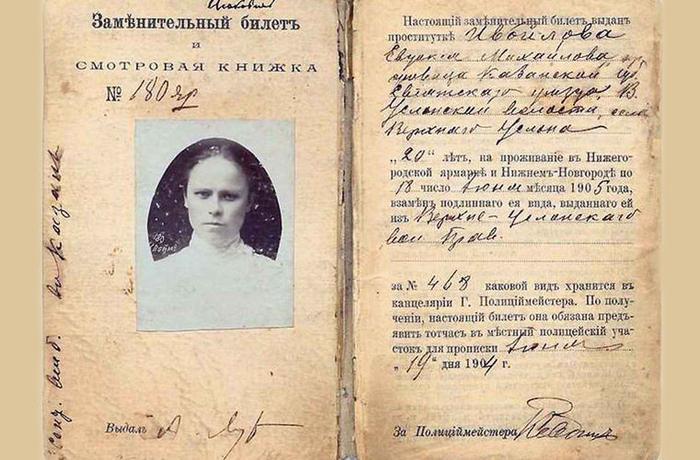 Замѣнительный билетъ
и
СМОТРОВАЯ КНИЖКА
№ 180 яр
Выдалъ
Настоящій замѣнительный билетъ выданъ
проституткѣ Ивойлова
Евдокія Михайлова
Казанской губ.
Свіяжскаго уѣзда, В.
Услонской волости, села
Верхняго Услона
„20“ лѣтъ, на проживаніе въ Нижего-
родской ярмаркѣ и Нижнемъ-Новгородѣ по
18 число іюня мѣсяца 1905 года,
взамѣнъ подлиннаго ея вида, выданнаго ей
изъ Верхне-Услонскаго
вол Прав.
за № 468 каковой видъ хранится въ
канцеляріи Г. Полиціймейстера. По полу-
ченіи, настоящій билетъ она обязана предъ-
явить тотчасъ въ мѣстный полицейскій уча-
стокъ для прописки Іюня
„19“ дня 1904 г.
За Полиціймейстера